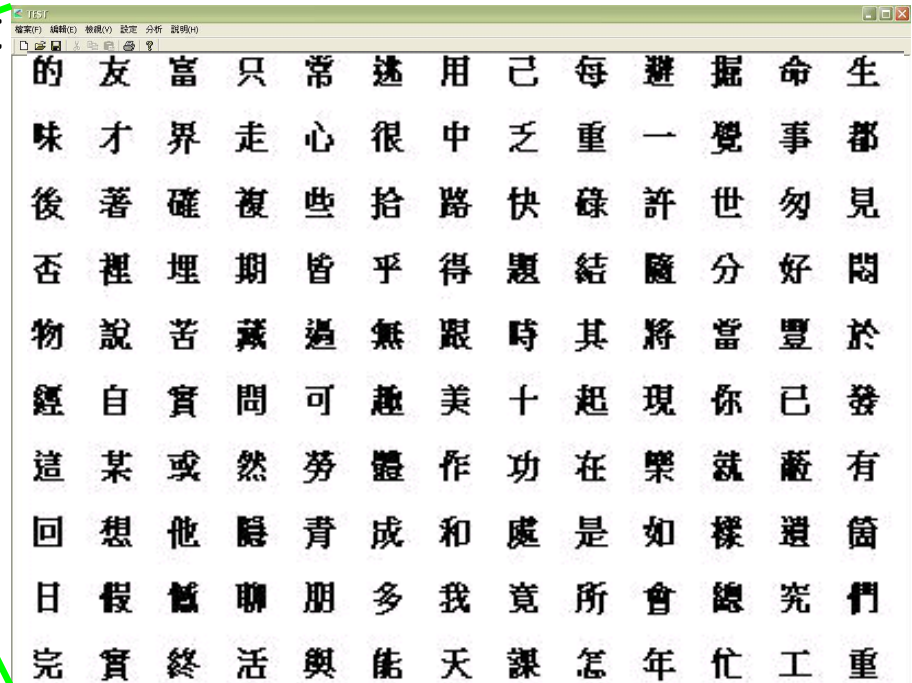 TEST
檔案(F) 編輯(E) 檢視(V) 設定 分析 說明(H)
的 友 富 只 常 逃 用 己 每 避 掘 命 生
味 才 界 走 心 很 中 乏 重 一 覺 事 都
後 著 確 複 些 拾 路 快 碌 許 世 匆 見
否 裡 埋 期 皆 乎 得 題 結 隨 分 好 悶
物 說 苦 藏 過 無 跟 時 其 將 當 豐 於
經 自 實 問 可 趣 美 十 起 現 你 已 發
這 某 或 然 勞 體 作 功 在 樂 就 蔽 有
回 想 他 隱 背 成 和 處 是 如 樣 遺 箇
日 假 憾 聊 朋 多 我 竟 所 會 總 究 們
完 實 終 活 與 能 天 課 怎 年 忙 工 重